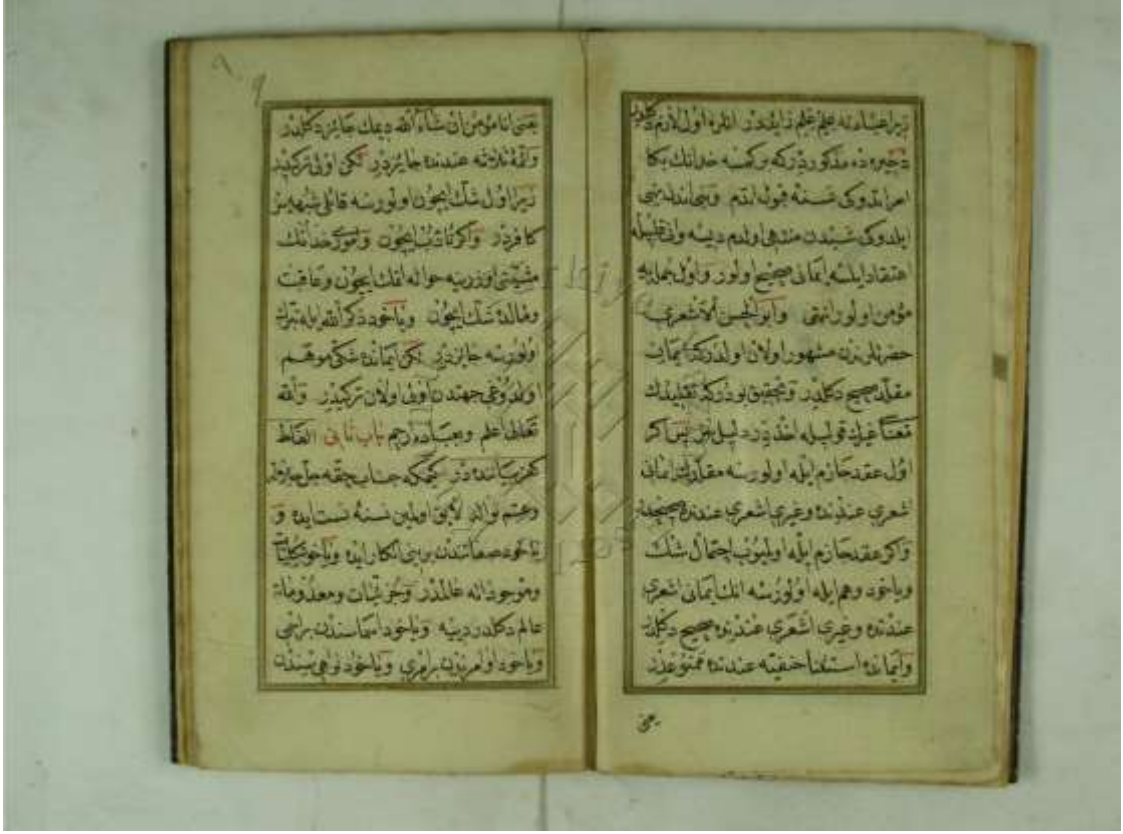 زیرا عباده علم علم زایددر انلره اول لازم دكلدر
ذخیره ده مذكوردركه بر كمسه خدانك بكا
امر ایتدوكی نسنه قبول ایتدم و بنی اندن نهی
ایلدوكی شیدن منتهی اولدم دیسه وانی قلبیله
اعتقاد ایلسه ایمانی صحیح اولور و اول جمله یه
مؤمن اولور انتهی و ابو الحسن الاشعری
حضرتلرندن مشهور اولان اولدركه ایمان
مقلد صحیح دكلدر و تحقیق بودركه تقلیدك
معناسی غیرك قولیله اخذدر دلیلسز پس اكر
اول عقد جازم ایله اولورسه مقلدك ایمانی
اشعری عندنده و غیری اشعری عندنده صحیحدر
و اكر عقد جازم ایله اولمیوب احتمال شك
ویاخود وهم ایله اولورسه انك ایمانی اشعری
عندنده و غیری اشعری عندنده صحیح دكلدر
و ایمانده استثنا حنفیه عندنده ممنوعدر
یعنی
٩
یعنی انا مؤمن ان شاء الله دیمك جائز دكلدر
و ائمهٔ ثلاثه عندنده جایزدر لكن اولی تركیدر
زیرا اول شك ایچون اولورسه قائلی شبهه سز
كافردر و اكر تأدب ایچون و اموری خدانك
مشیتی اوزرینه حواله اتمك ایچون و عاقبت
و مالده شك ایچون ویاخود ذكر الله ایله تبرك
اولورسه جایزدر لكن ایمانده شكی موهم
اولدوغی جهتدن اولی اولان تركیدر و الله
تعالی اعلم و بعباده ارحم باب ثانی الفاظ
كفر بیاننده در كیمكه جناب حقه جل جلاله
و عم نواله لایق اولمین نسنه نسبت ایده و
یاخود صفاتندن برینی انكار ایده ویاخود كلیات
و موجوداته عالمدر و جزئیات و معدوماته
عالم دكلدر دیسه ویاخود اسماسندن بر اسمی
ویاخود اوامرندن بر امری ویاخود نواهیسندن